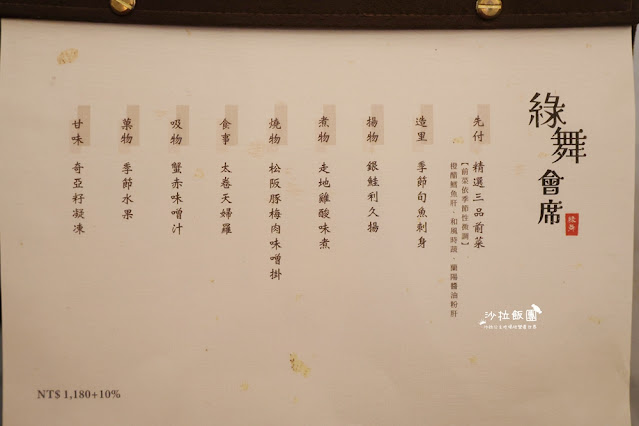 綠舞會席
綠舞
先付 精選三品前菜
【前菜依季節性微調】
橙醋鱈魚肝、和風時蔬、蘭陽醬油粉肝
造里 季節旬魚刺身
揚物 銀鮭利久揚
煮物 走地雞酸味煮
燒物 松阪豚梅肉味噌掛
食事 太卷天婦羅
吸物 蟹赤味噌汁
菓物 季節水果
甘味 奇亞籽凝凍
NT$ 1,180+10%
沙拉飯團